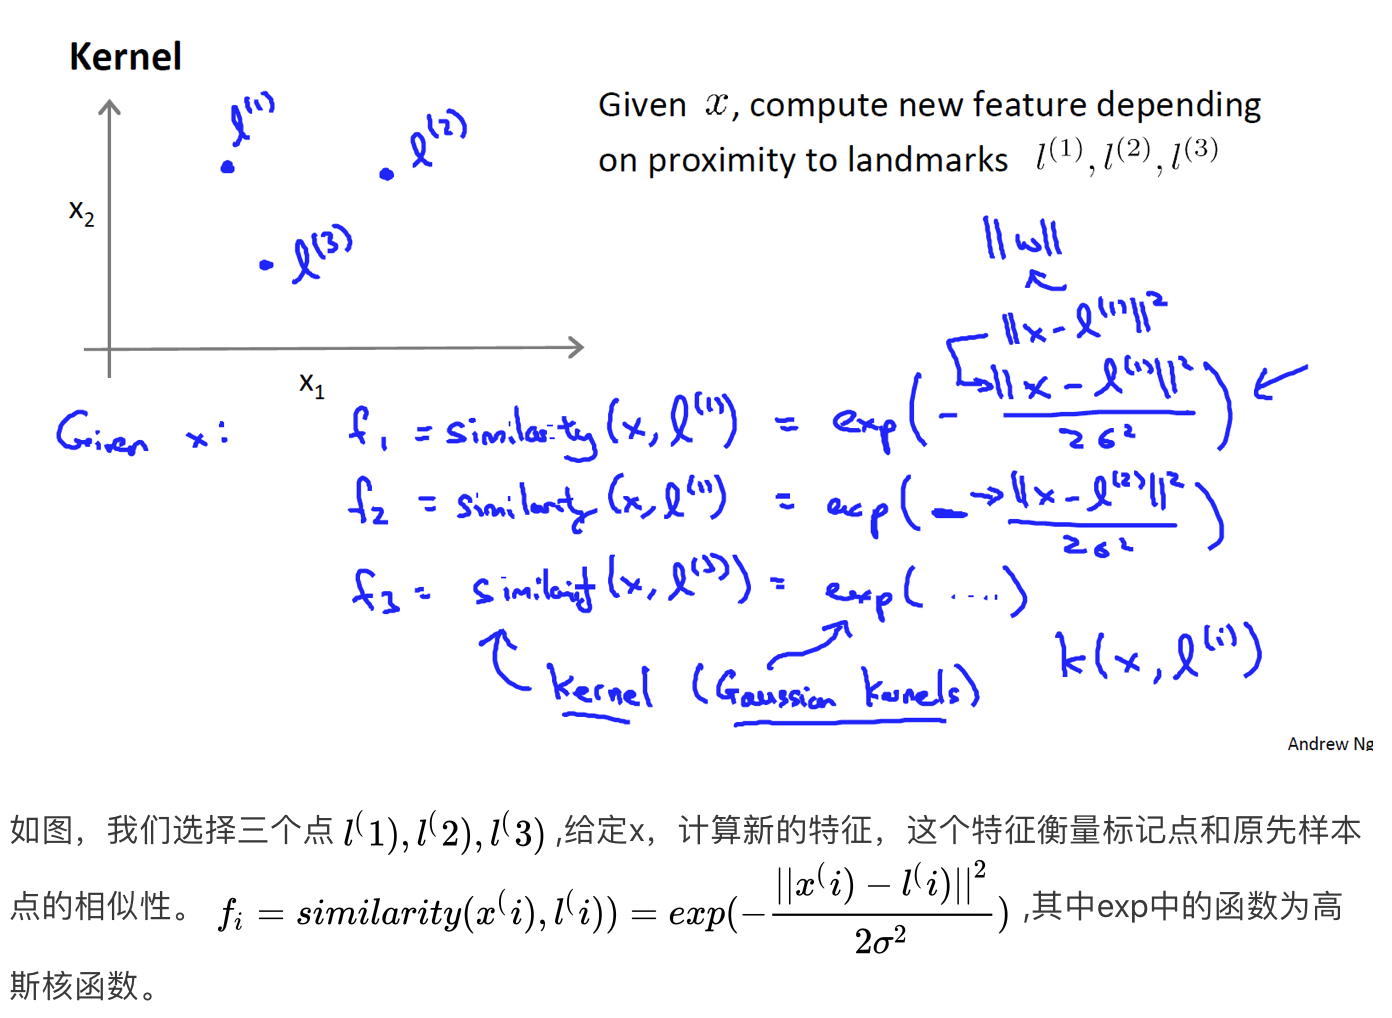 Kernel
Given x, compute new feature depending
on proximity to landmarks l⁽¹⁾, l⁽²⁾, l⁽³⁾
l⁽¹⁾
l⁽²⁾
l⁽³⁾
x₂
x₁
||w||
||x - l⁽¹⁾||²
Given x: f₁ = similarity(x, l⁽¹⁾) = exp(- ||x - l⁽¹⁾||² / 2σ²)
f₂ = similarity(x, l⁽¹⁾) = exp(- ||x - l⁽²⁾||² / 2σ²)
f₃ = similarity(x, l⁽³⁾) = exp( ..... )
kernel (Gaussian kernels) k(x, l⁽ⁱ⁾)
Andrew Ng
如图，我们选择三个点 l⁽1), l⁽2), l⁽3) ,给定x，计算新的特征，这个特征衡量标记点和原先样本
点的相似性。 fᵢ = similarity(x⁽i), l⁽i)) = exp(- ||x⁽i) - l⁽i)||² / 2σ²) ,其中exp中的函数为高
斯核函数。